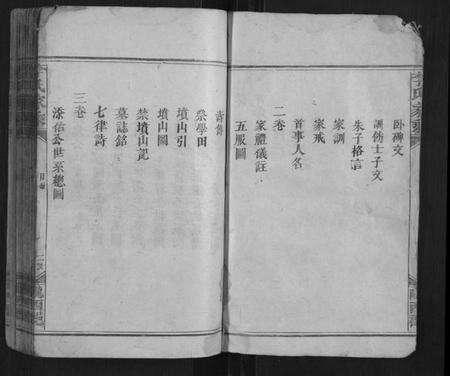 卧碑文
訓飭士子文
朱子格言
家訓
家戒
二卷
首事人名
家禮儀註
五服圖
壽雋
祭學田
墳山引
墳山圖
禁墳山記
墓誌銘
七律詩
三卷
添信公世系總圖